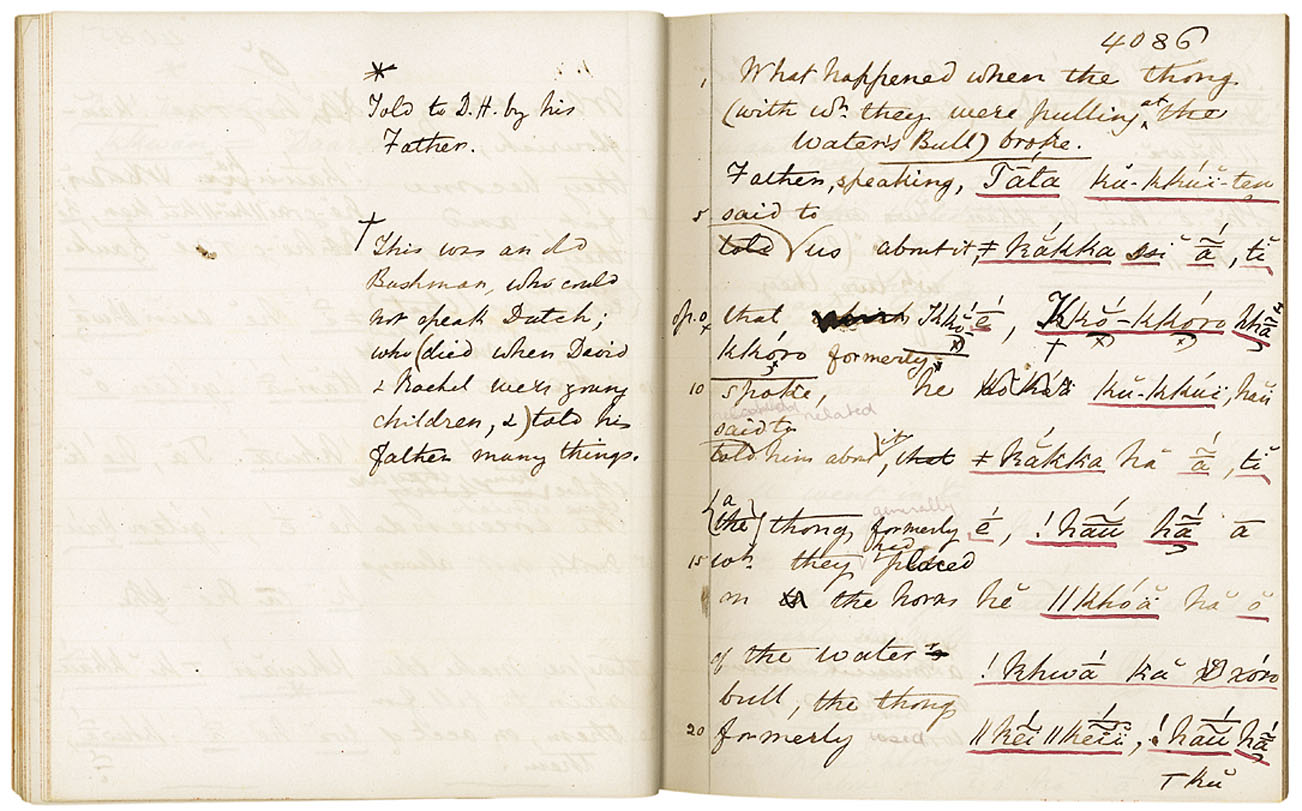 *
Told to D.H. by his
Father.
†
This was an old
Bushman, who could
not speak Dutch;
who (died when David
& Rachel were young
children, &) told his
father many things.
4086
1 What happened when the thong
(with wh. they were pulling at the
water's Bull) broke.
Father, speaking, Tátá kŭ-kkúĭ-ten
5 said to
told us about it, ǂkăkka ssĭ ā́, tĭ
that Kkŏ́-ĕ, Kkŏ́-kkóro hā̃́
kkóro formerly
10 spoke, he kŭ-kkúï, hăŭ
related
said to
told him about it, that ǂkăkka hă ā́, tĭ
generally
{a
(the} thong formerly é, !hāū hā̃́ ā
had
15 wh. they placed
on the horns hĕ ǁkhóä hă ŏ
of the water's !khwā́ kă xóro
bull, the thong
20 formerly ǁkĕĭ ǁkéïï, !hāū hā̃́
kŭ